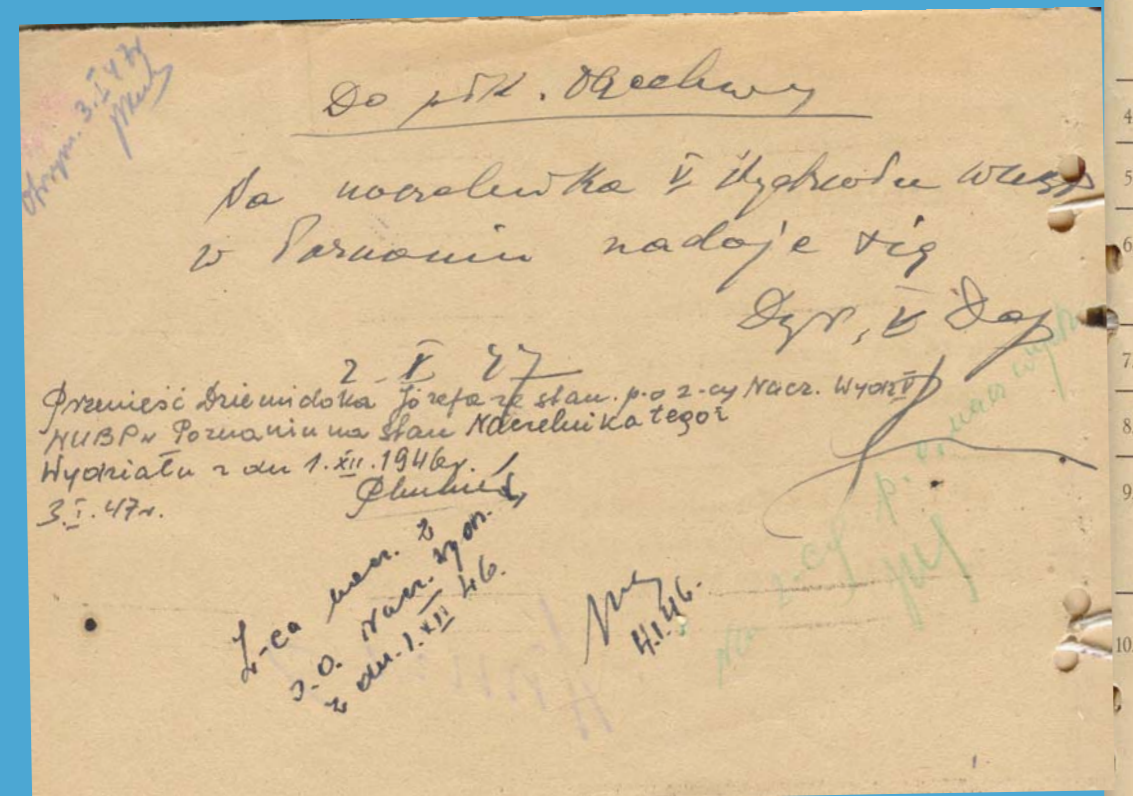 Otrzym. 3.I.47r
Do płk. Orechwy
Na naczelnika V Wydziału WUBP
w Poznaniu nadaje się
Dyr. V Dep
2.I 47
Przenieść Dziemidoka Józefa ze stan. p.o z-cy Nacz. Wydz V
WUBP w Poznaniu na stan Naczelnika tegoż
Wydziału z dn 1.XII.1946r.
3.I.47r.
Z-ca nacz. z
Nacz.
z dn. 1.XII 46.
4.I.46.
Na z-cy p.o. nacz
1.
4
5
6
7
8
9
10